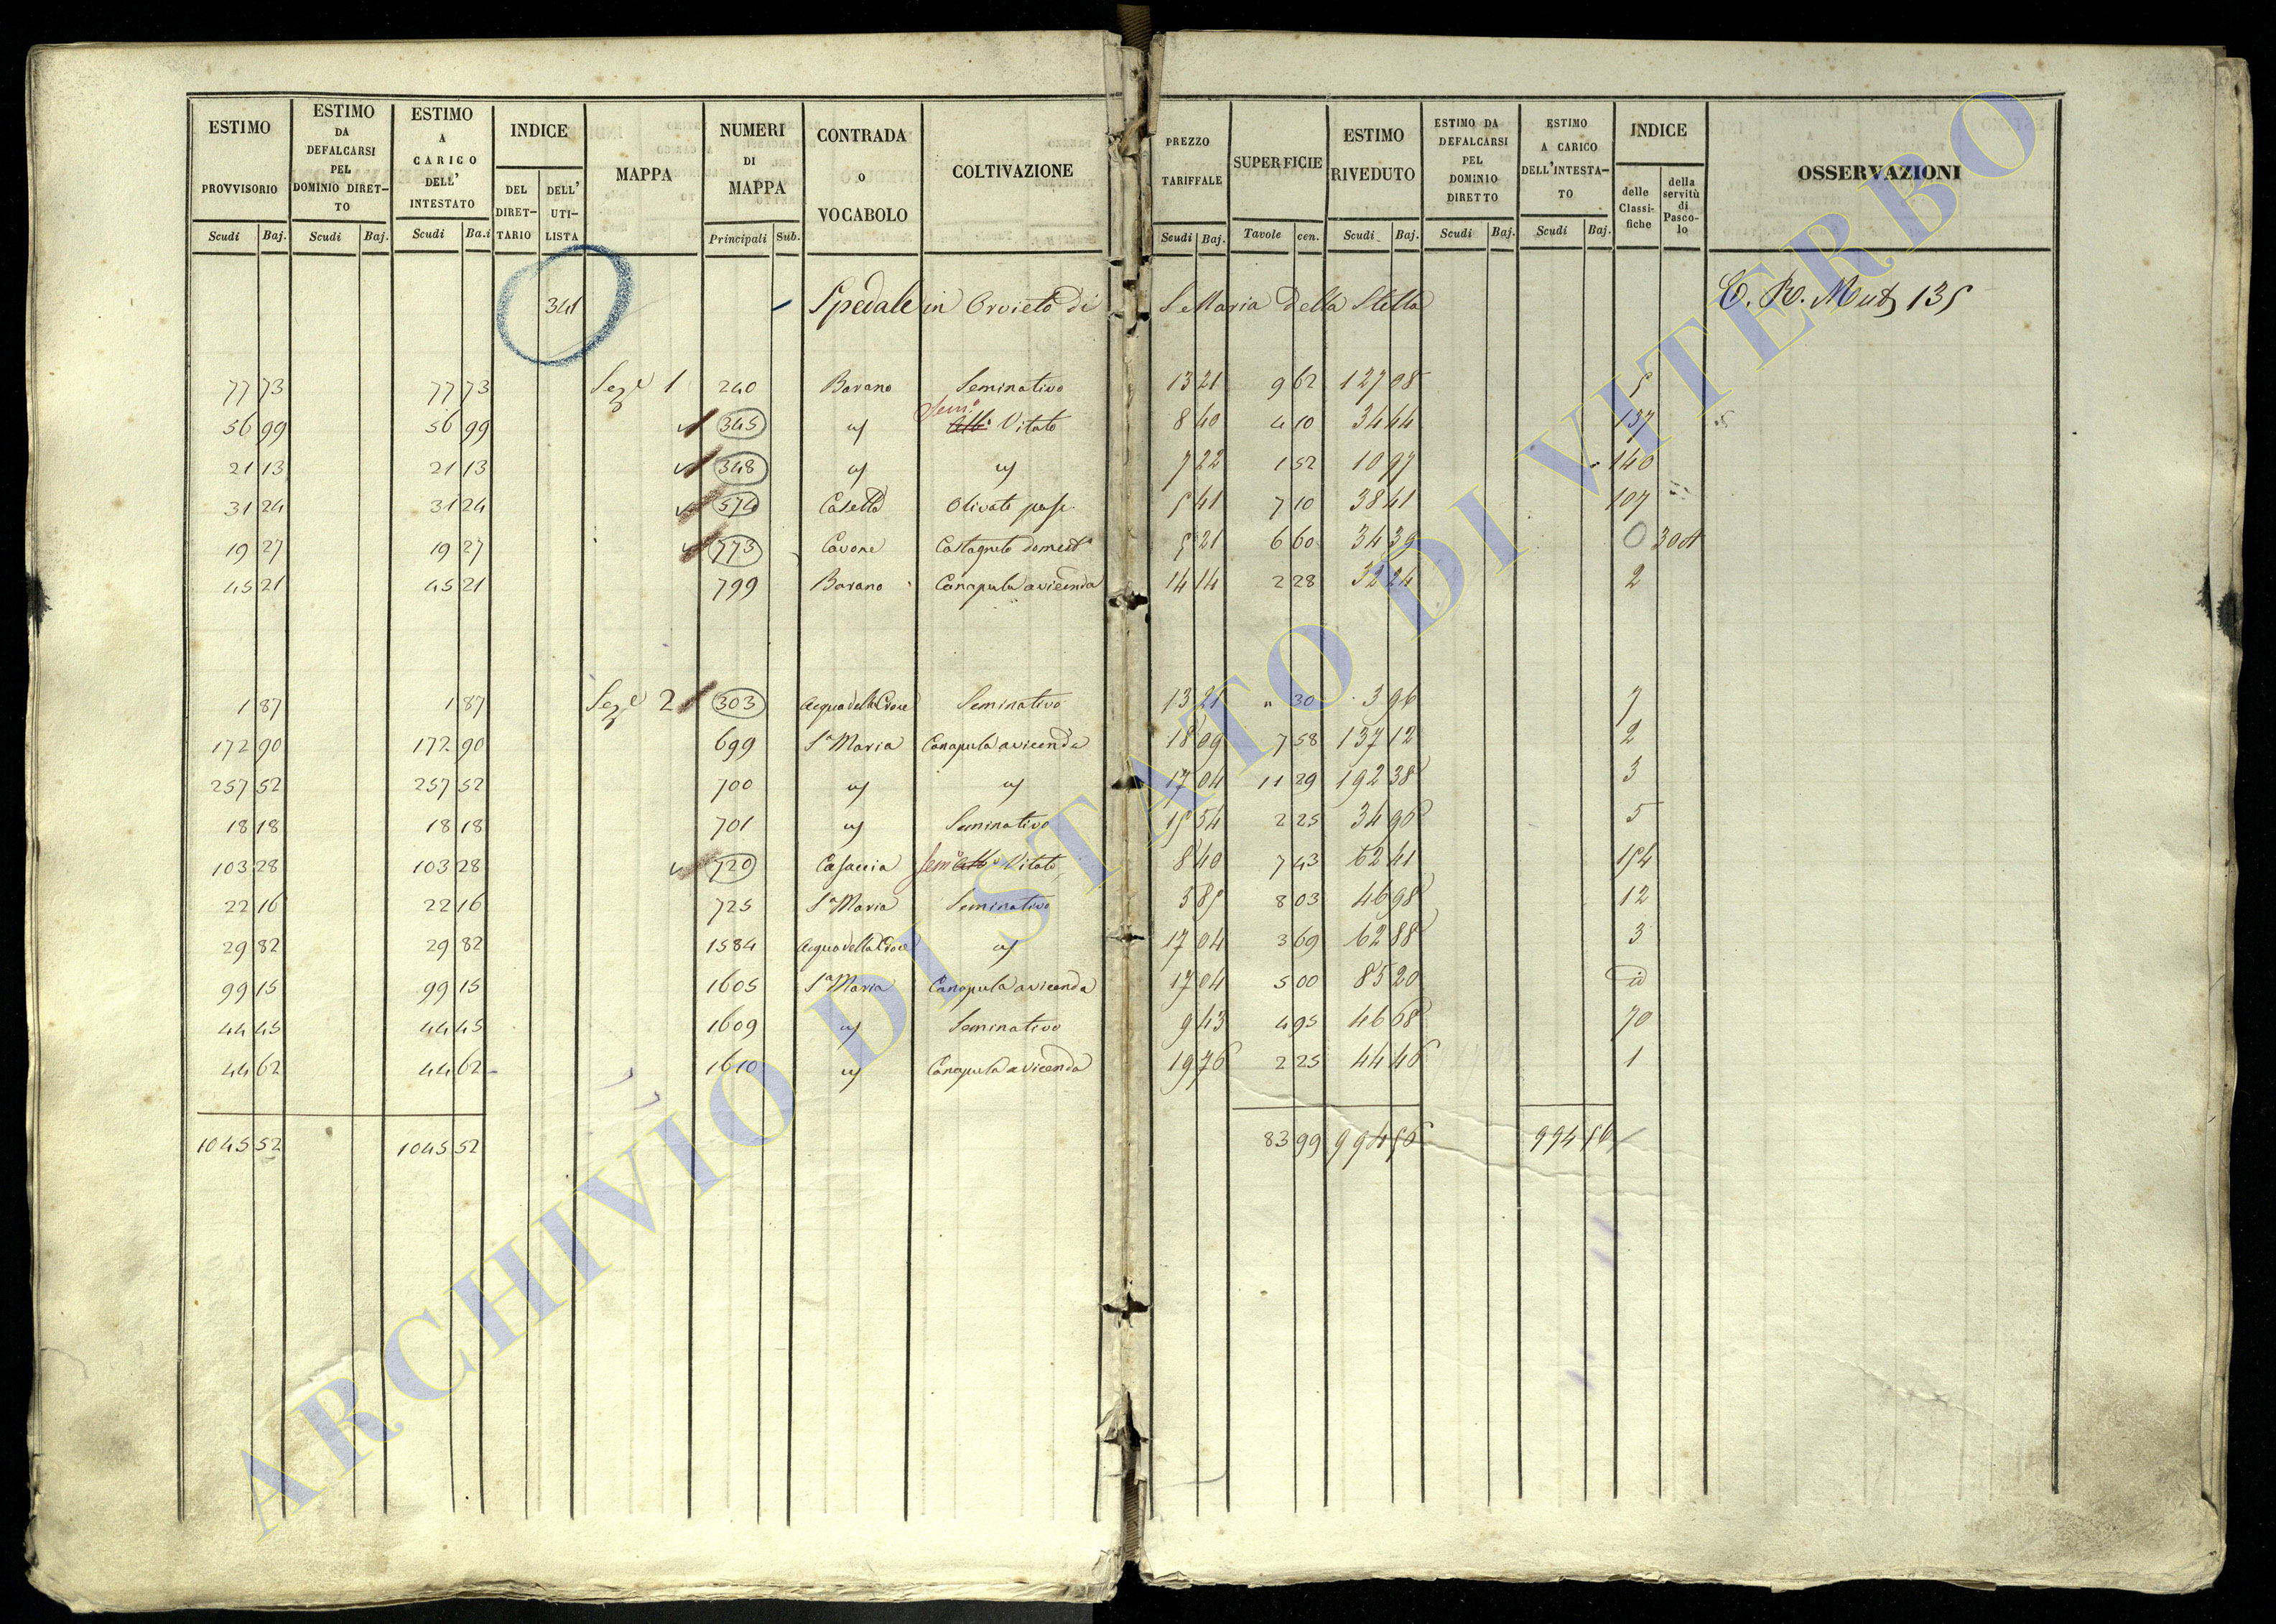 ESTIMO PROVVISORIO
Scudi Baj.
ESTIMO DA DEFALCARSI PEL DOMINIO DIRETTO
Scudi Baj.
ESTIMO A CARICO DELL' INTESTATO
Scudi Ba.i
INDICE
DEL DIRETTARIO
DELL' UTILISTA
MAPPA
NUMERI DI MAPPA
Principali Sub.
CONTRADA o VOCABOLO
COLTIVAZIONE
PREZZO TARIFFALE
Scudi Baj.
SUPERFICIE
Tavole cen.
ESTIMO RIVEDUTO
Scudi Baj.
ESTIMO DA DEFALCARSI PEL DOMINIO DIRETTO
Scudi Baj.
ESTIMO A CARICO DELL'INTESTATO
Scudi Baj.
INDICE
delle Classifiche
della servitù di Pascolo
OSSERVAZIONI
341 Spedale in Orvieto di S Maria della Stella 135
77 73 77 73 Seze 1 240 Barano Seminativo 13 21 9 62 127 08 5
56 99 56 99 345 " Sem.o Vitato 8 40 4 10 34 44 137
21 13 21 13 348 " " 7 22 1 52 10 97 140
31 24 31 24 574 Casetta Olivato pasc. 5 41 7 10 38 41 107
19 27 19 27 773 Cavone Castagneto domest.o 5 21 6 60 34 39 0 304
45 21 45 21 799 Barano Canapula a vicenda 14 14 2 28 32 24 2
1 87 1 87 Seze 2 303 Acqua della Croce Seminativo 13 21 " 30 3 96 7
172 90 172 90 699 S.a Maria Canapula a vicenda 18 09 7 58 137 12 2
257 52 257 52 700 " " 17 04 11 29 192 38 3
18 18 18 18 701 " Seminativo 15 54 2 25 34 96 5
103 28 103 28 720 Casaccia Sem.o Vitato 8 40 7 43 62 41 154
22 16 22 16 725 S.a Maria Seminativo 5 85 8 03 46 98 12
29 82 29 82 1584 Acqua della Croce " 17 04 3 69 62 88 3
99 15 99 15 1605 S.a Maria Canapula a vicenda 17 04 5 00 85 20
44 45 44 45 1609 " Seminativo 9 43 4 95 46 68 70
44 62 44 62 1610 " Canapula a vicenda 19 76 2 25 44 46 1
1045 52 1045 52 83 99 994 56 994 56
ARCHIVIO DI STATO DI VITERBO